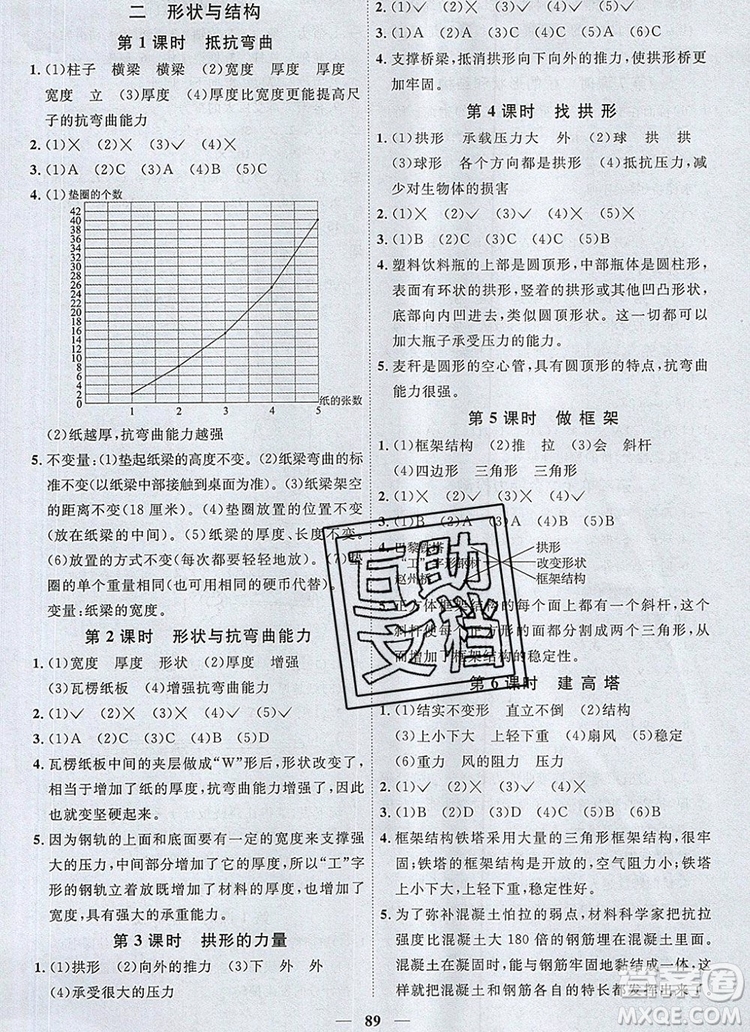 二 形状与结构
第1课时 抵抗弯曲
1. (1)柱子 横梁 横梁 (2)宽度 厚度 厚度
宽度 立 (3)厚度 (4)厚度比宽度更能提高尺
子的抗弯曲能力
2. (1)✕ (2)✕ (3)✓ (4)✓ (5)✕
3. (1)A (2)A (3)A (4)B (5)C
4. (1)垫圈的个数
42
40
38
36
34
32
30
28
26
24
22
20
18
16
14
12
10
8
6
4
2
0
1 2 3 4 5
纸的张数
(2)纸越厚,抗弯曲能力越强
5. 不变量:(1)垫起纸梁的高度不变。(2)纸梁弯曲的标
准不变(以纸梁中部接触到桌面为标准)。(3)纸梁架空
的距离不变(18厘米)。(4)垫圈放置的位置不变
(放在纸梁的中间)。(5)纸梁的厚度、长度不变。
(6)放置的方式不变(每次都要轻轻地放)。(7)垫
圈的单个重量相同(也可用相同的硬币代替)。
变量:纸梁的宽度。
第2课时 形状与抗弯曲能力
1. (1)宽度 厚度 形状 (2)厚度 增强
(3)瓦楞纸板 (4)增强抗弯曲能力
2. (1)✓ (2)✕ (3)✕ (4)✓ (5)✓
3. (1)A (2)C (3)A (4)D (5)A
4. 瓦楞纸板中间的夹层做成“W”形后,形状改变了,
相当于增加了纸的厚度,抗弯曲能力大大增强,
因此变得坚硬起来。
5. 因为钢轨的上面和下面要有一定的宽度来支撑强
大的压力,中间部分增加了它的厚度,所以“工”字
形的钢轨大大增加了材料的厚度,增强了抗弯曲
能力,具有强大的承重能力。
第3课时 拱形的力量
1. (1)拱形 (2)向外的推力 (3)向下 向外
(4)承受很大的压力
2. (1)✓ (2)✕ (3)✓ (4)✓ (5)✓
3. (1)C (2)A (3)C (4)B (5)A
4. 支撑桥梁,抵消拱形向下向外的推力,使拱形桥更
加牢固。
第4课时 找拱形
1. (1)拱形 承载压力大 外 (2)球 拱 拱
(3)球形 各个方向都是拱形 (4)抵抗压力,减
少对生物体的损害
2. (1)✓ (2)✓ (3)✕ (4)✓ (5)✕
3. (1)B (2)C (3)A (4)B (5)C
4. 塑料饮料瓶的上部是圆顶形,中部瓶体是圆柱形,
表面有环状的拱形,竖着的拱形或者其他凹凸形状,
底部向内凹进去,类似圆顶形。这些形状可以增
加大瓶子承受压力的能力。
5. 麦秆是圆形的空心管,具有圆顶形的特点,抗弯曲
能力很强。
第5课时 做框架
1. (1)框架结构 (2)推 拉 (3)若 斜杆
(4)四边形 三角形 三角形
2. (1)✕ (2)✓ (3)✓ (4)✓ (5)✕
3. (1)B (2)A (3)B (4)A (5)A
4. 巴黎铁塔 拱形
“工”字形钢材 改变形状
赵州桥 框架结构
5. 正方体框架结构的每个面上都有一个斜杆,这个
斜杆使每个正方形的面都分成两个三角形,从
而增加了框架结构的稳定性。
第6课时 建高塔
1. (1)结实不变形 直立不倒 (2)结构
(3)上小下大 上轻下重 (4)扇风 (5)稳定
(6)重力 风的阻力 风力
2. (1)✓ (2)✓ (3)✕ (4)✓ (5)✕
3. (1)B (2)D (3)A (4)B (5)A
4. 框架结构铁塔采用大量的三角形框架结构,很牢
固;铁塔的框架结构是开放的,空气阻力小;铁塔
上小下大、上轻下重,稳定性好。
5. 为了弥补混凝土怕拉的弱点,材料科学家们把抗拉
强度比混凝土大180倍的钢筋埋在混凝土里面。
混凝土在凝固时,能与钢筋牢固地黏结成一个整体,
使混凝土和钢筋各自的特长都发挥出来了。
89
互助文档
答案圈
MXQE.COM